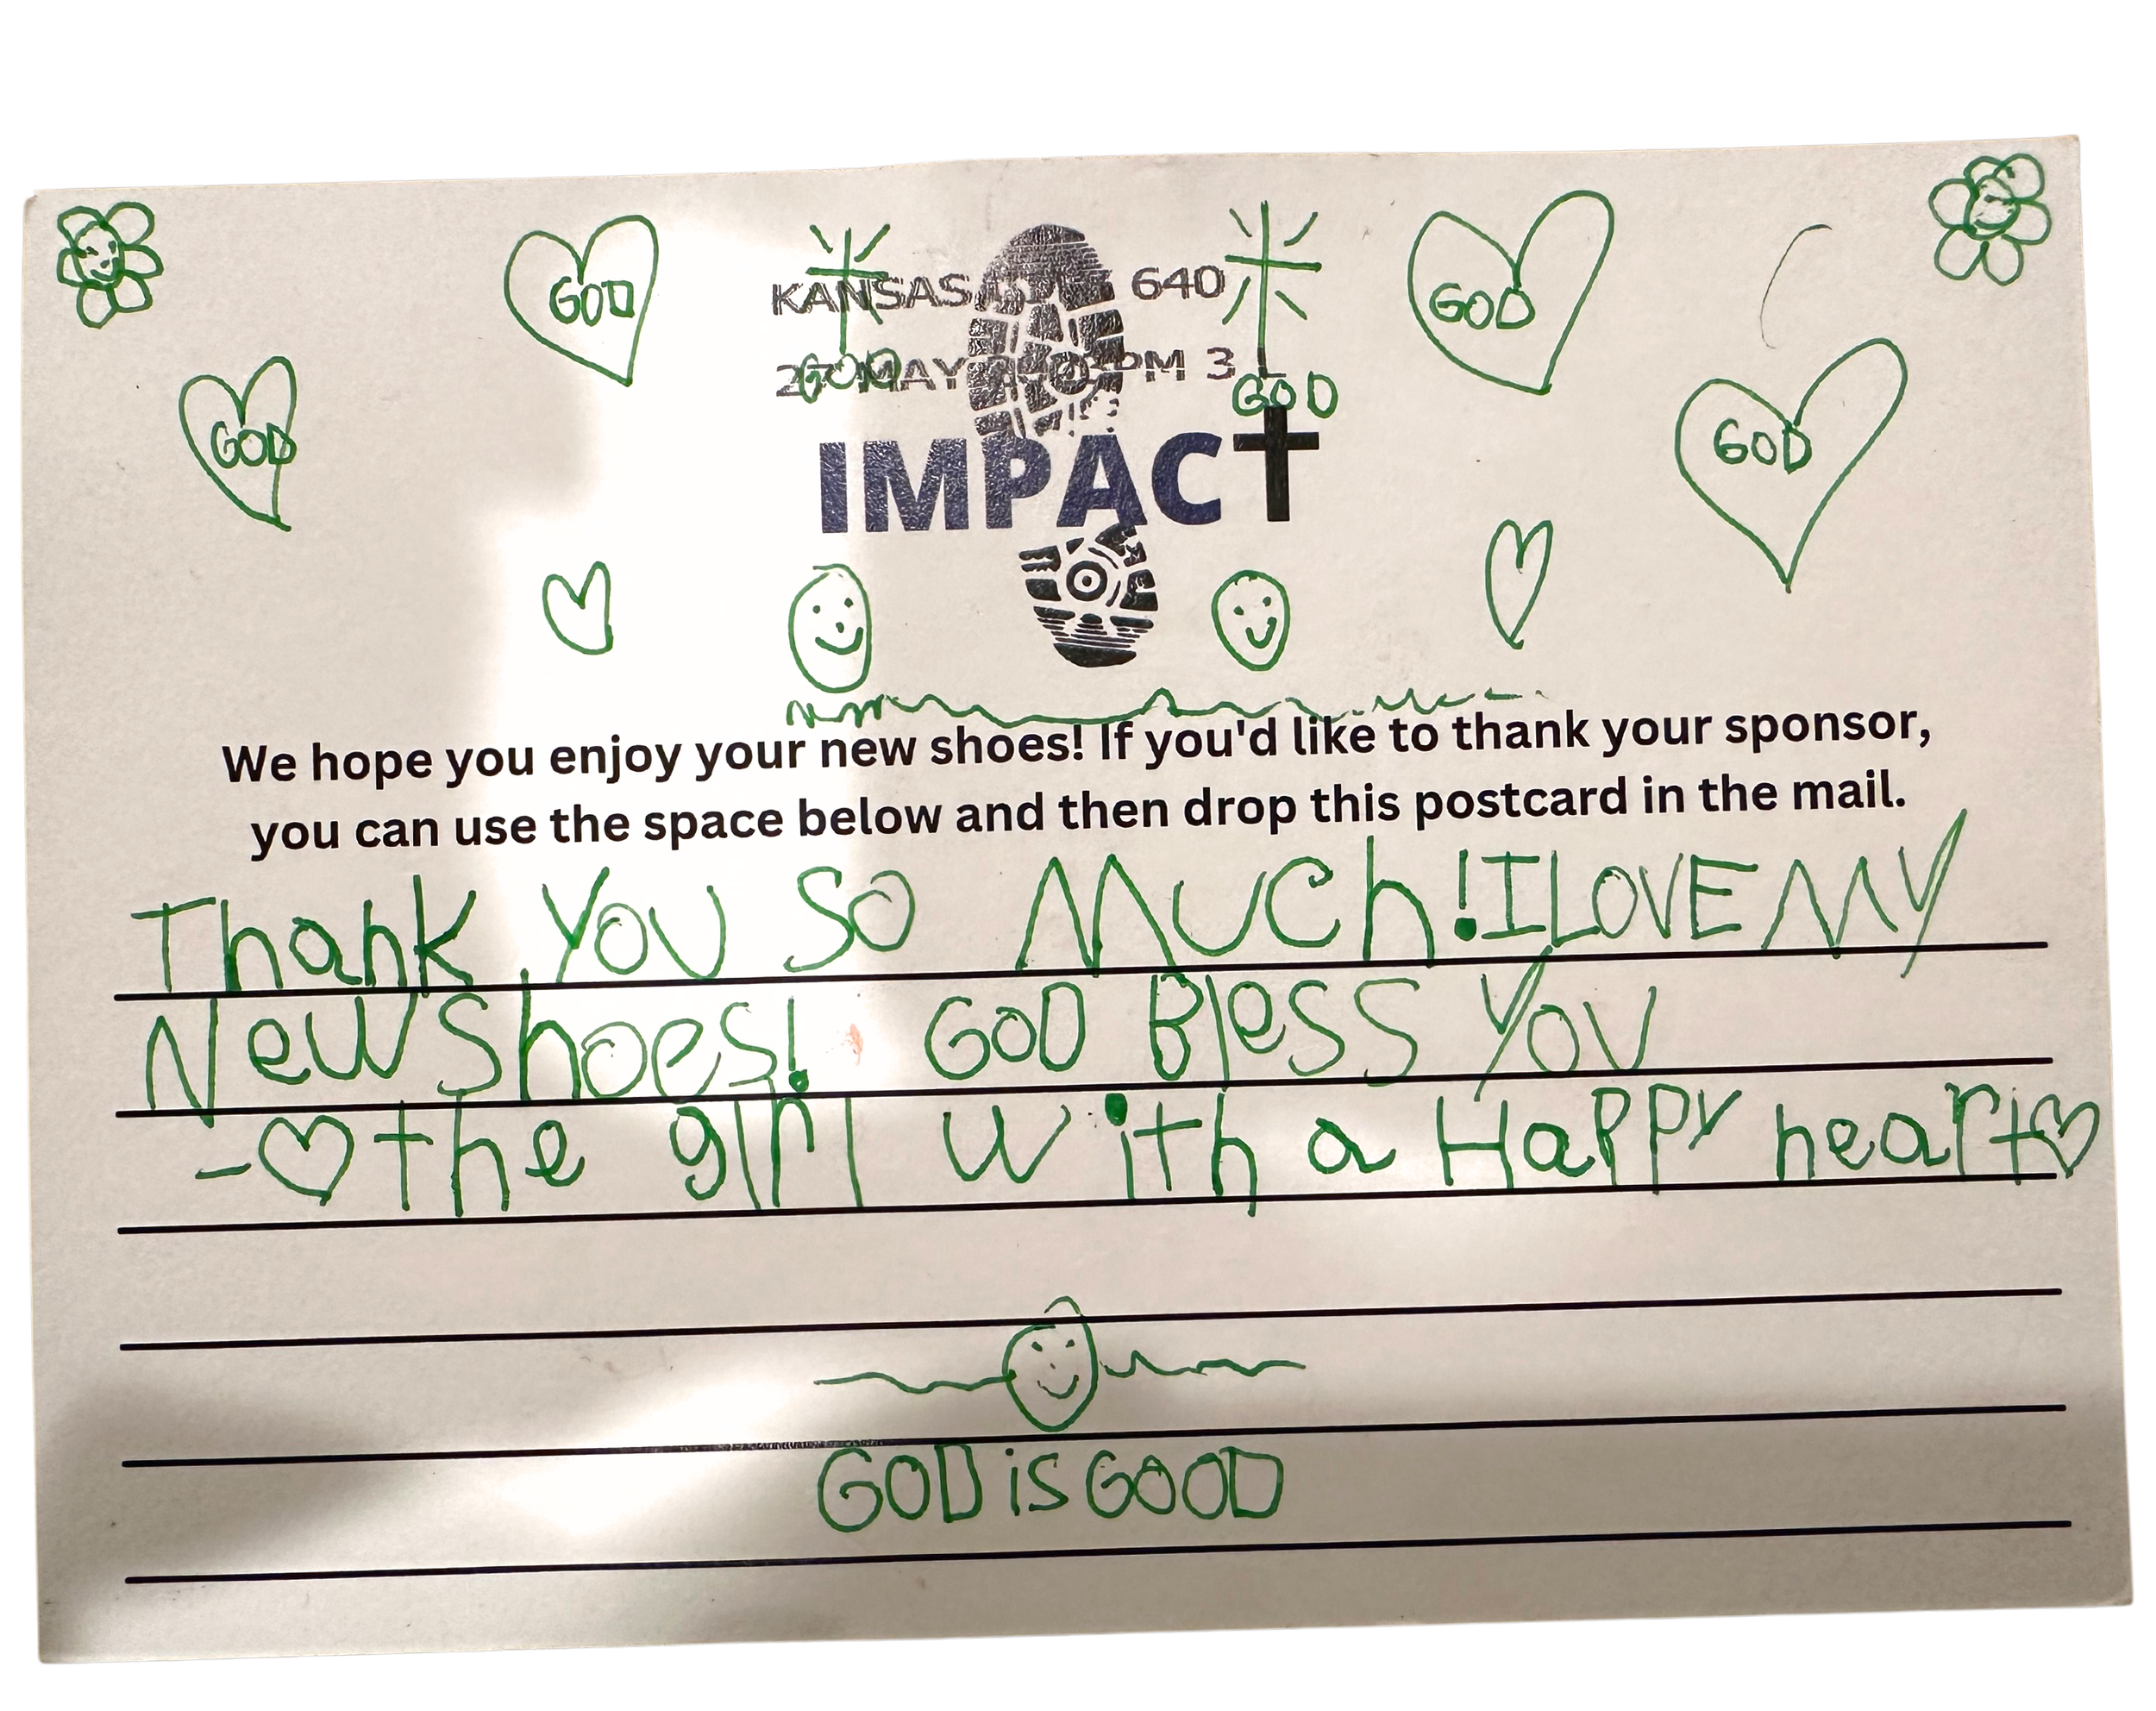 GOD
GOD
GOD
GOD
KANSAS 640
MAY PM 3 L
GOD
GOD
IMPACT
We hope you enjoy your new shoes! If you'd like to thank your sponsor,
you can use the space below and then drop this postcard in the mail.
Thank You So Much! I LOVE MY
New Shoes! GOD Bless You
- ♡ the girl with a Happy heart ♡
GOD is GOOD